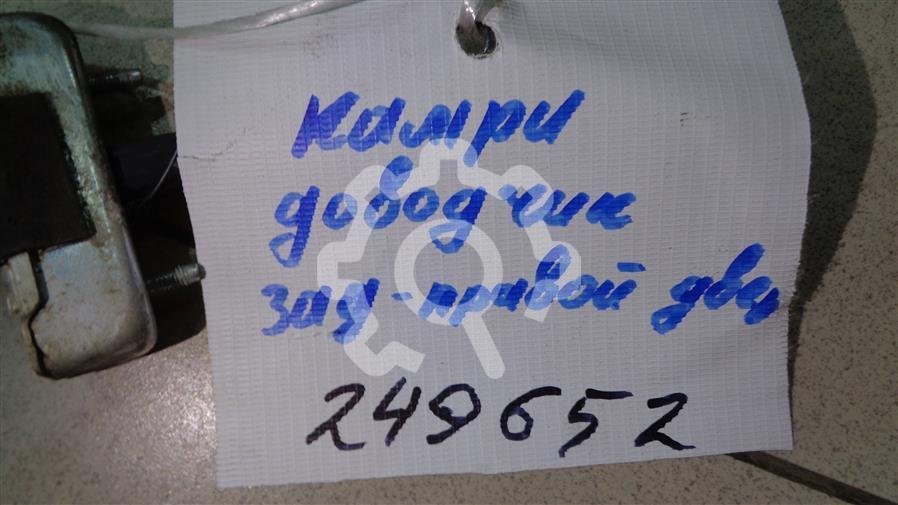 Камри
доводчик
зад-правой две
249652